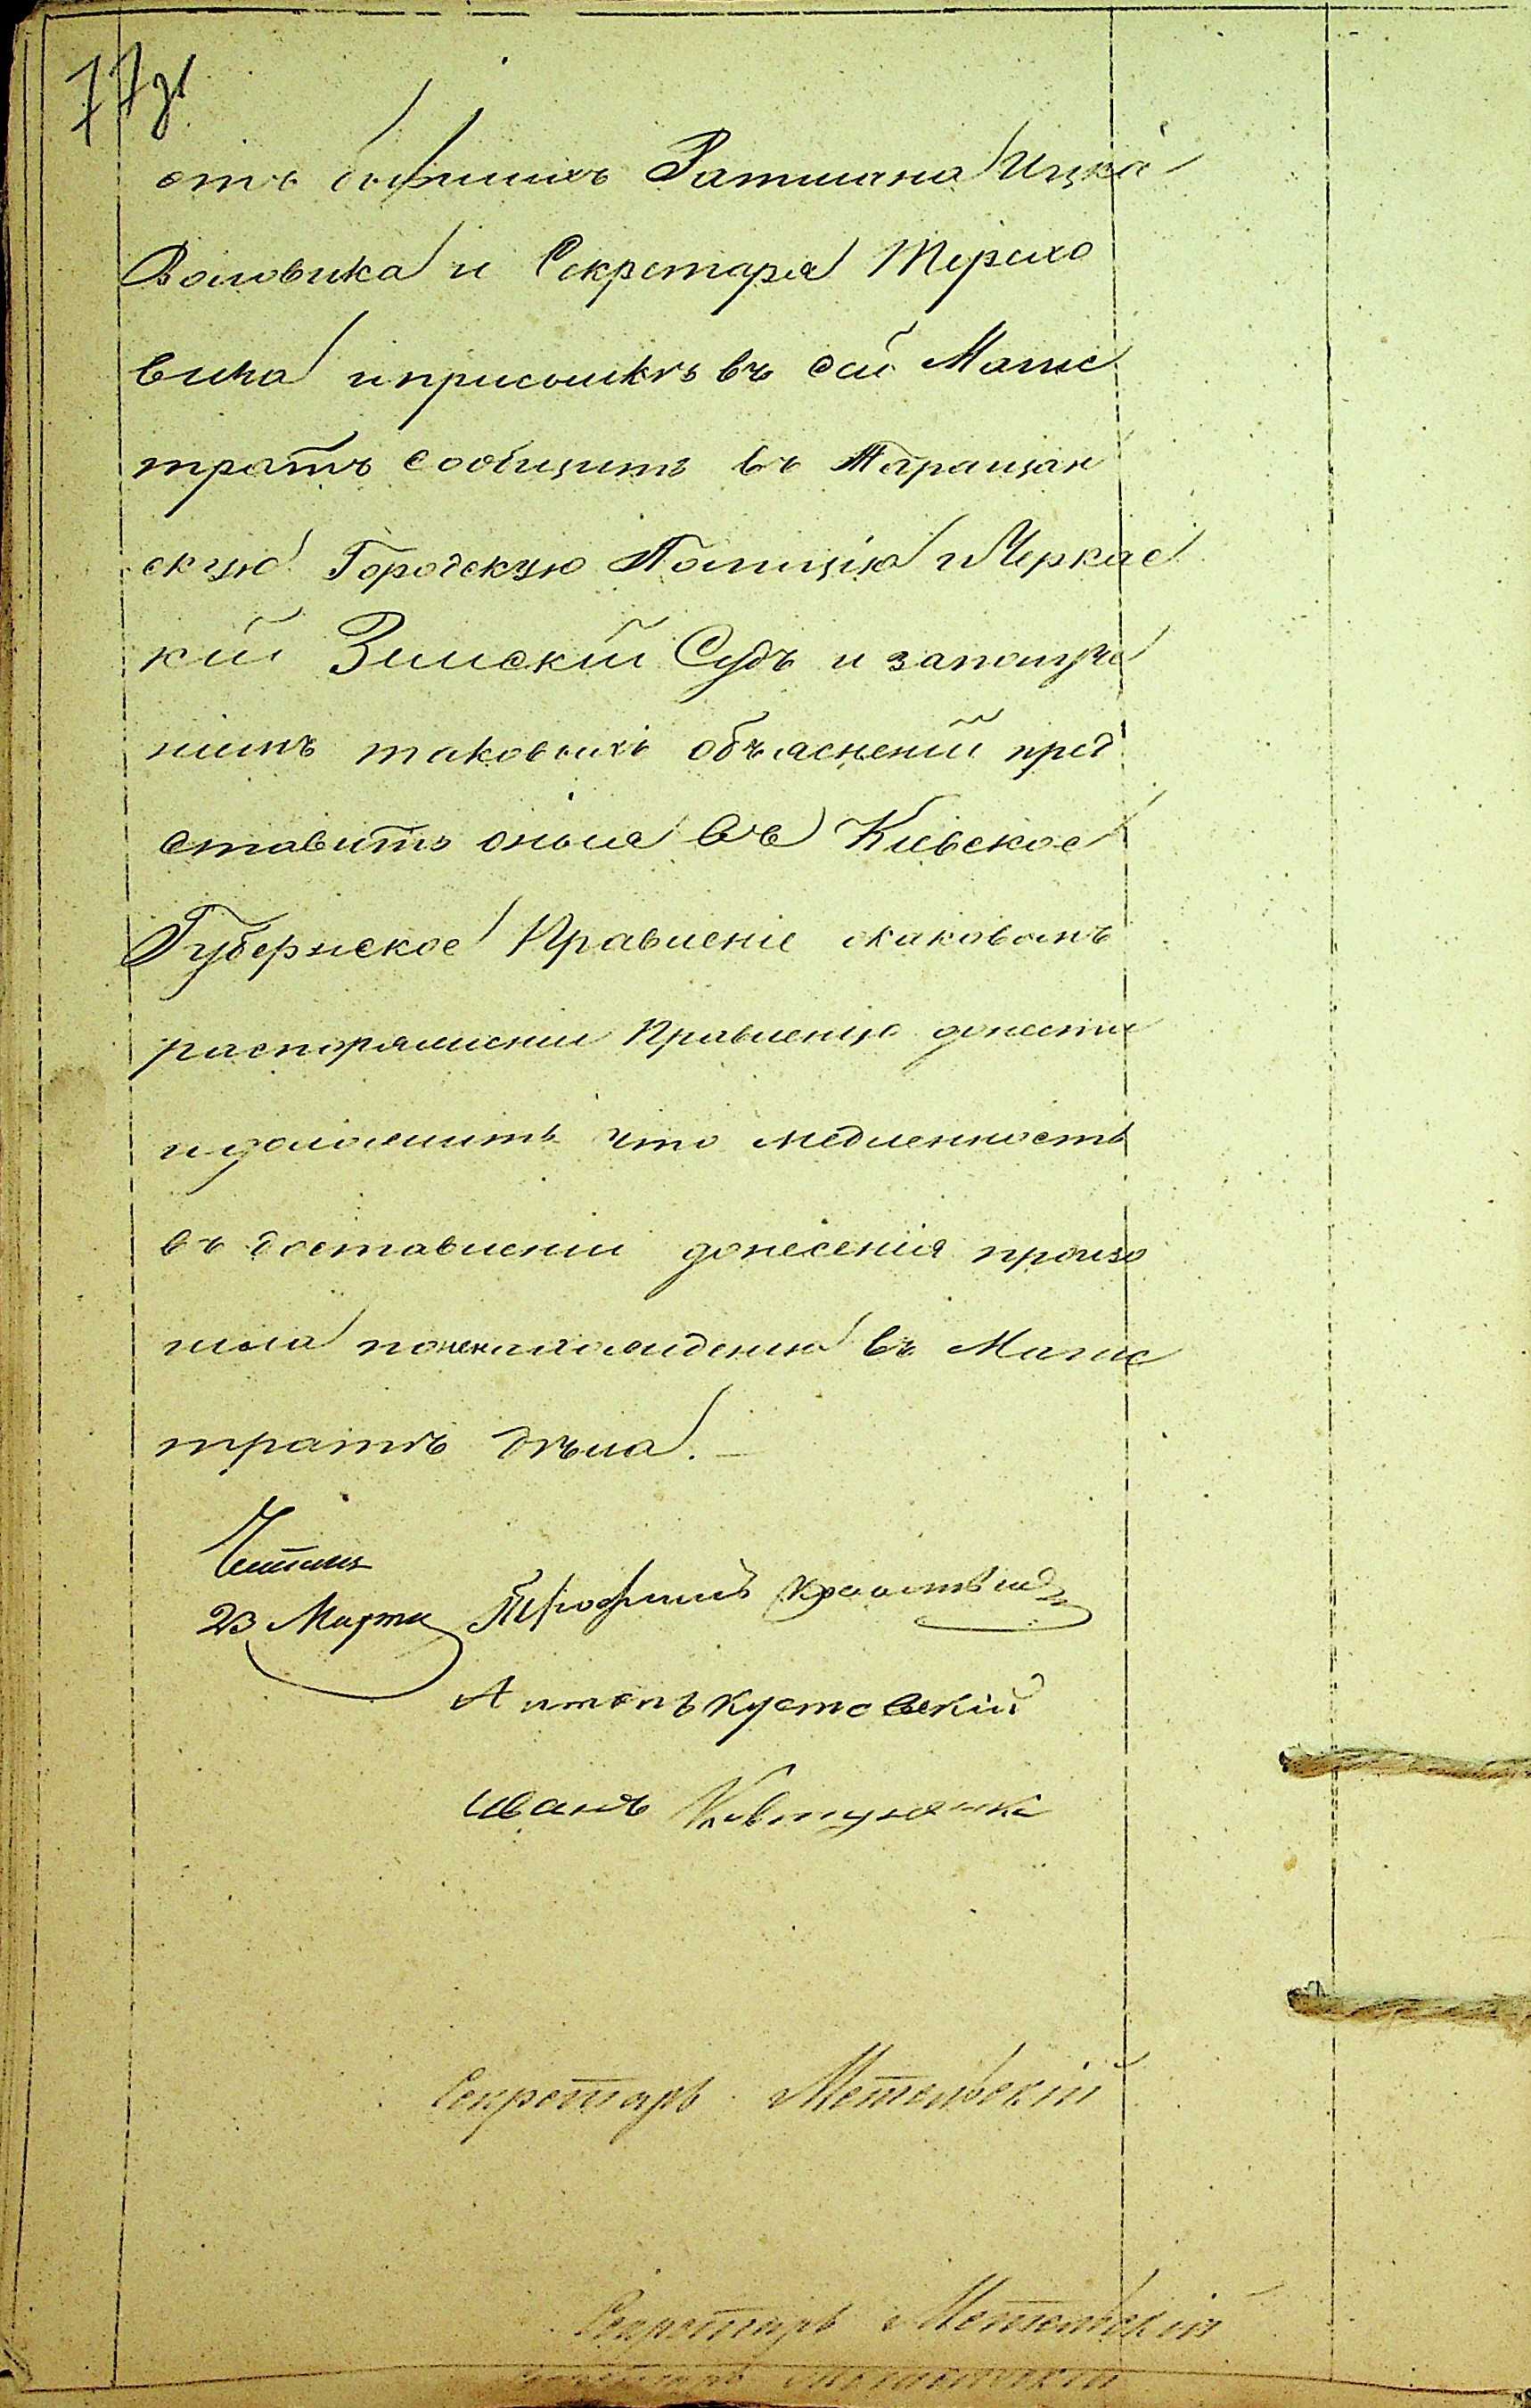 77
отъ бывшихъ Ратмана Ицка
Воловика и Секретаря Терехо
вича и присылкѣ въ сей Магис
тратъ сообщить въ Таращан
скую Городскую Полицію и Черкас
кій Земскій Судъ и заполуче
ніемъ таковыхъ объясненій пред
ставить оныя въ Кіевское
Губернское Правленіе о каковомъ
распоряженіи Правленію донести
и доложить что медленность
въ доставленіи донесенія произо
шла по нахожденію въ Магис
тратѣ дѣла.
23 Марта Трофимъ
Антонъ Кустовскій
Иванъ Ковтуненко
Секретарь Метельскій
Секретарь Метельскій